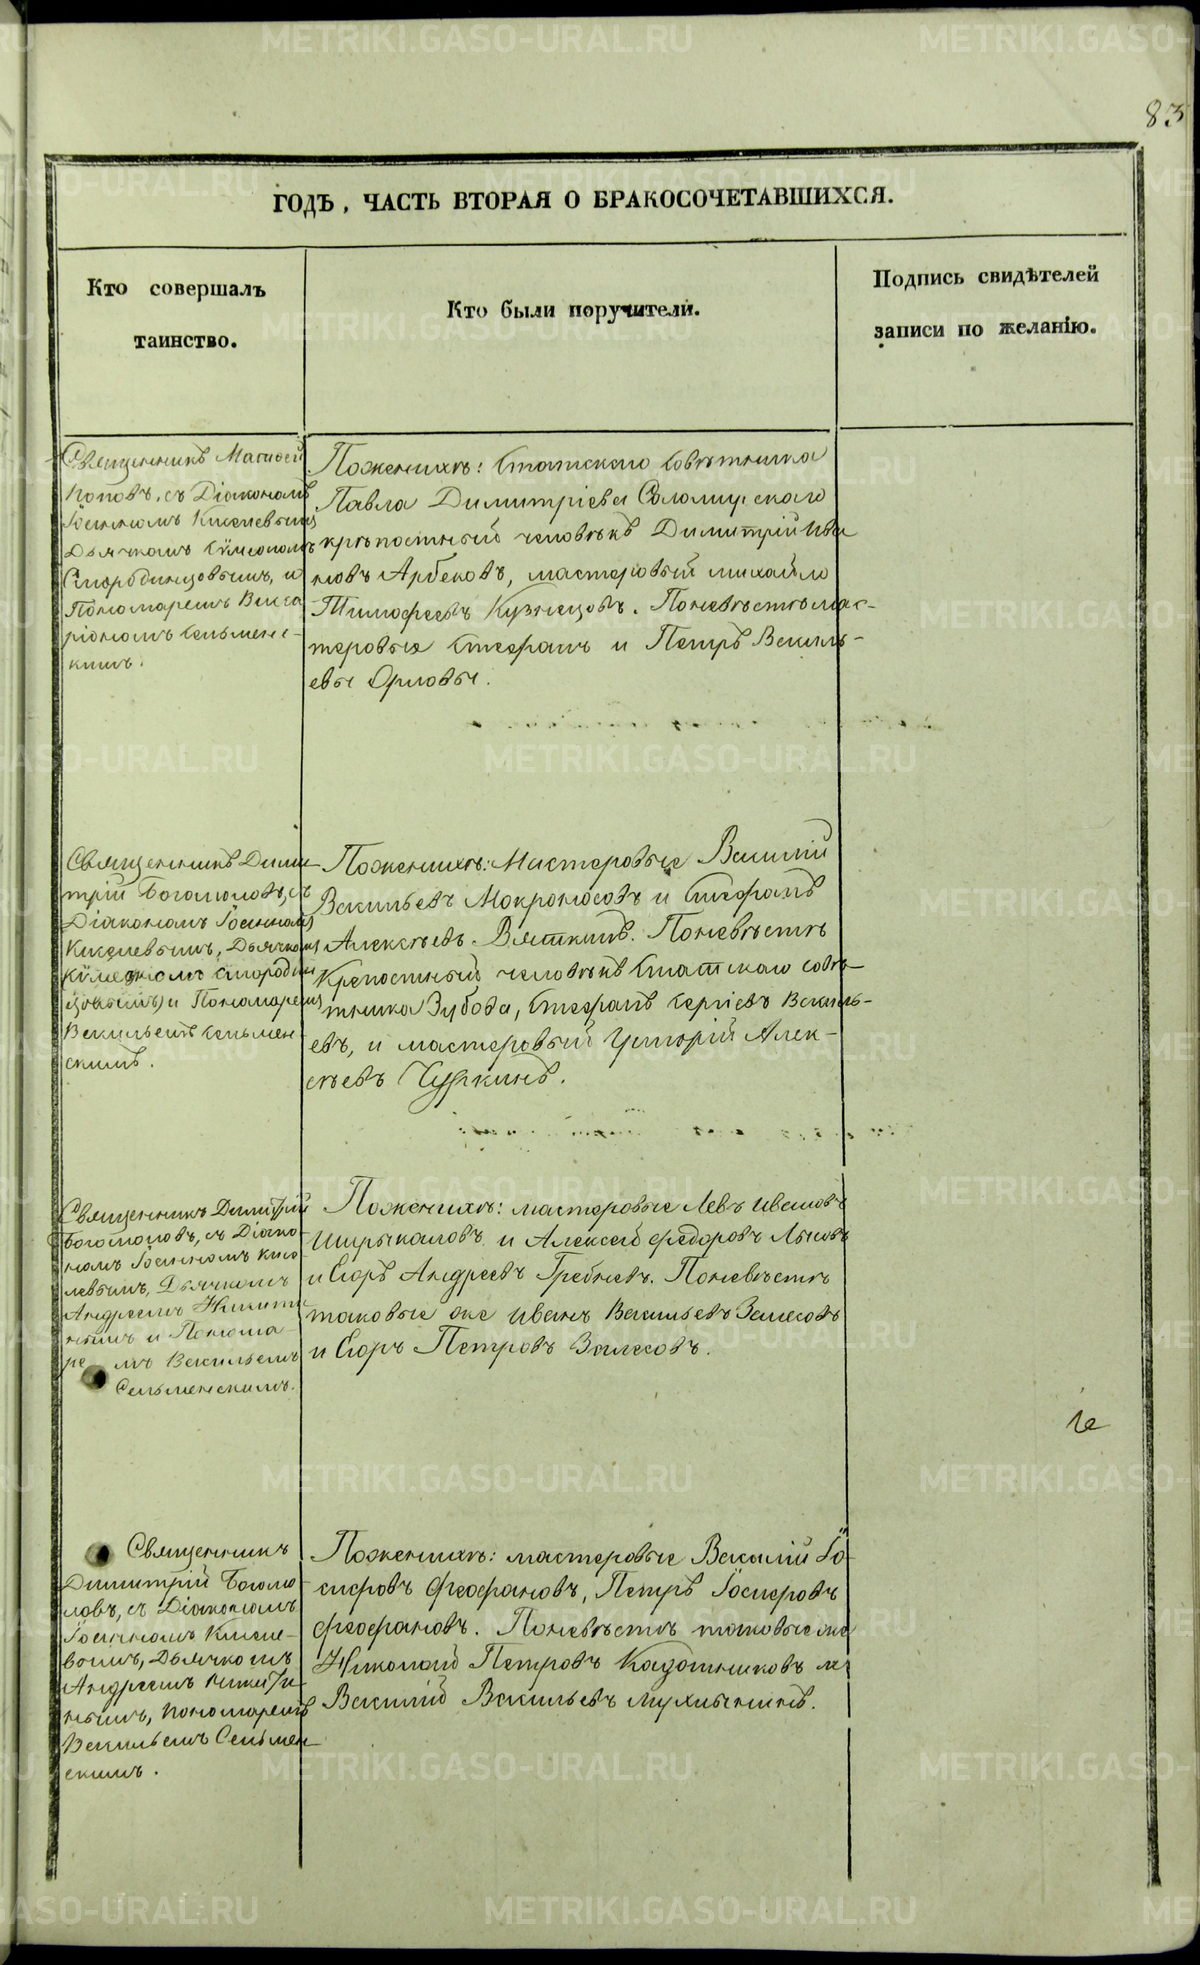 83
ГОДЪ, ЧАСТЬ ВТОРАЯ О БРАКОСОЧЕТАВШИХСЯ.
Кто совершалъ
таинство.
Кто были поручители.
Подпись свидѣтелей
записи по желанію.
Священникъ Матѳей
Поповъ, съ Діакономъ
Іоанномъ Киселевымъ
Дьячкомъ Сѵмеономъ
Смородинцовымъ, и
Пономаремъ Висса
ріономъ Сельменс-
кимъ.
По женихѣ: Статскаго Совѣтника
Павла Димитріева Соломирскаго
крѣпостный человѣкъ Димитрій Ива
новъ Арбековъ, мастеровый михайло
Тимофеевъ Кузнецовъ. По невѣстѣ мас-
теровые Стефанъ и Петръ Василь-
евы Орловы.
Священникъ Дими
трій Богомоловъ, съ
Діакономъ Іоанномъ
Киселевымъ, Дьячкомъ
Сѵмеономъ Смородин
цовымъ и Пономаремъ
Васильемъ Сельмен
скимъ.
По женихѣ: Мастеровые Василій
Васильевъ Мокроносовъ и Стефанъ
Алексѣевъ Вяткинъ. По невѣстѣ
Крепостный человѣкъ Статскаго совѣ-
тника Зубова, Стефанъ Сергіевъ Василь-
евъ, и мастеровый Григорій Алек-
сѣевъ Чуркинъ.
Священникъ Димитрій
Богомоловъ, съ Діако
номъ Іоанномъ Кисе
левымъ, Дьячкомъ
Андреемъ Никити
нымъ и Понома
ре мъ Васильемъ
Сельменскимъ.
По женихѣ: мастеровые Левъ Ивановъ
Ширыкаловъ и Алексей Федоровъ Лысовъ
и Егоръ Андреевъ Гребневъ. По невѣстѣ
таковые же Иванъ Васильевъ Залесовъ
и Егоръ Петровъ Залесовъ.
Священникъ
Димитрій Богомо
ловъ, съ Діакономъ
Іоанномъ Кисле-
вымъ, Дьячкомъ
Андреемъ Никити-
нымъ, Пономаремъ
Васильемъ Сельмен
скимъ.
По женихѣ: мастеровые Василій Іо-
сифовъ Феофановъ, Петръ Іосифовъ
Феофановъ. По невѣстѣ таковые же
Николай Петровъ Кадошниковъ и
Василій Васильевъ Мухлынинъ.